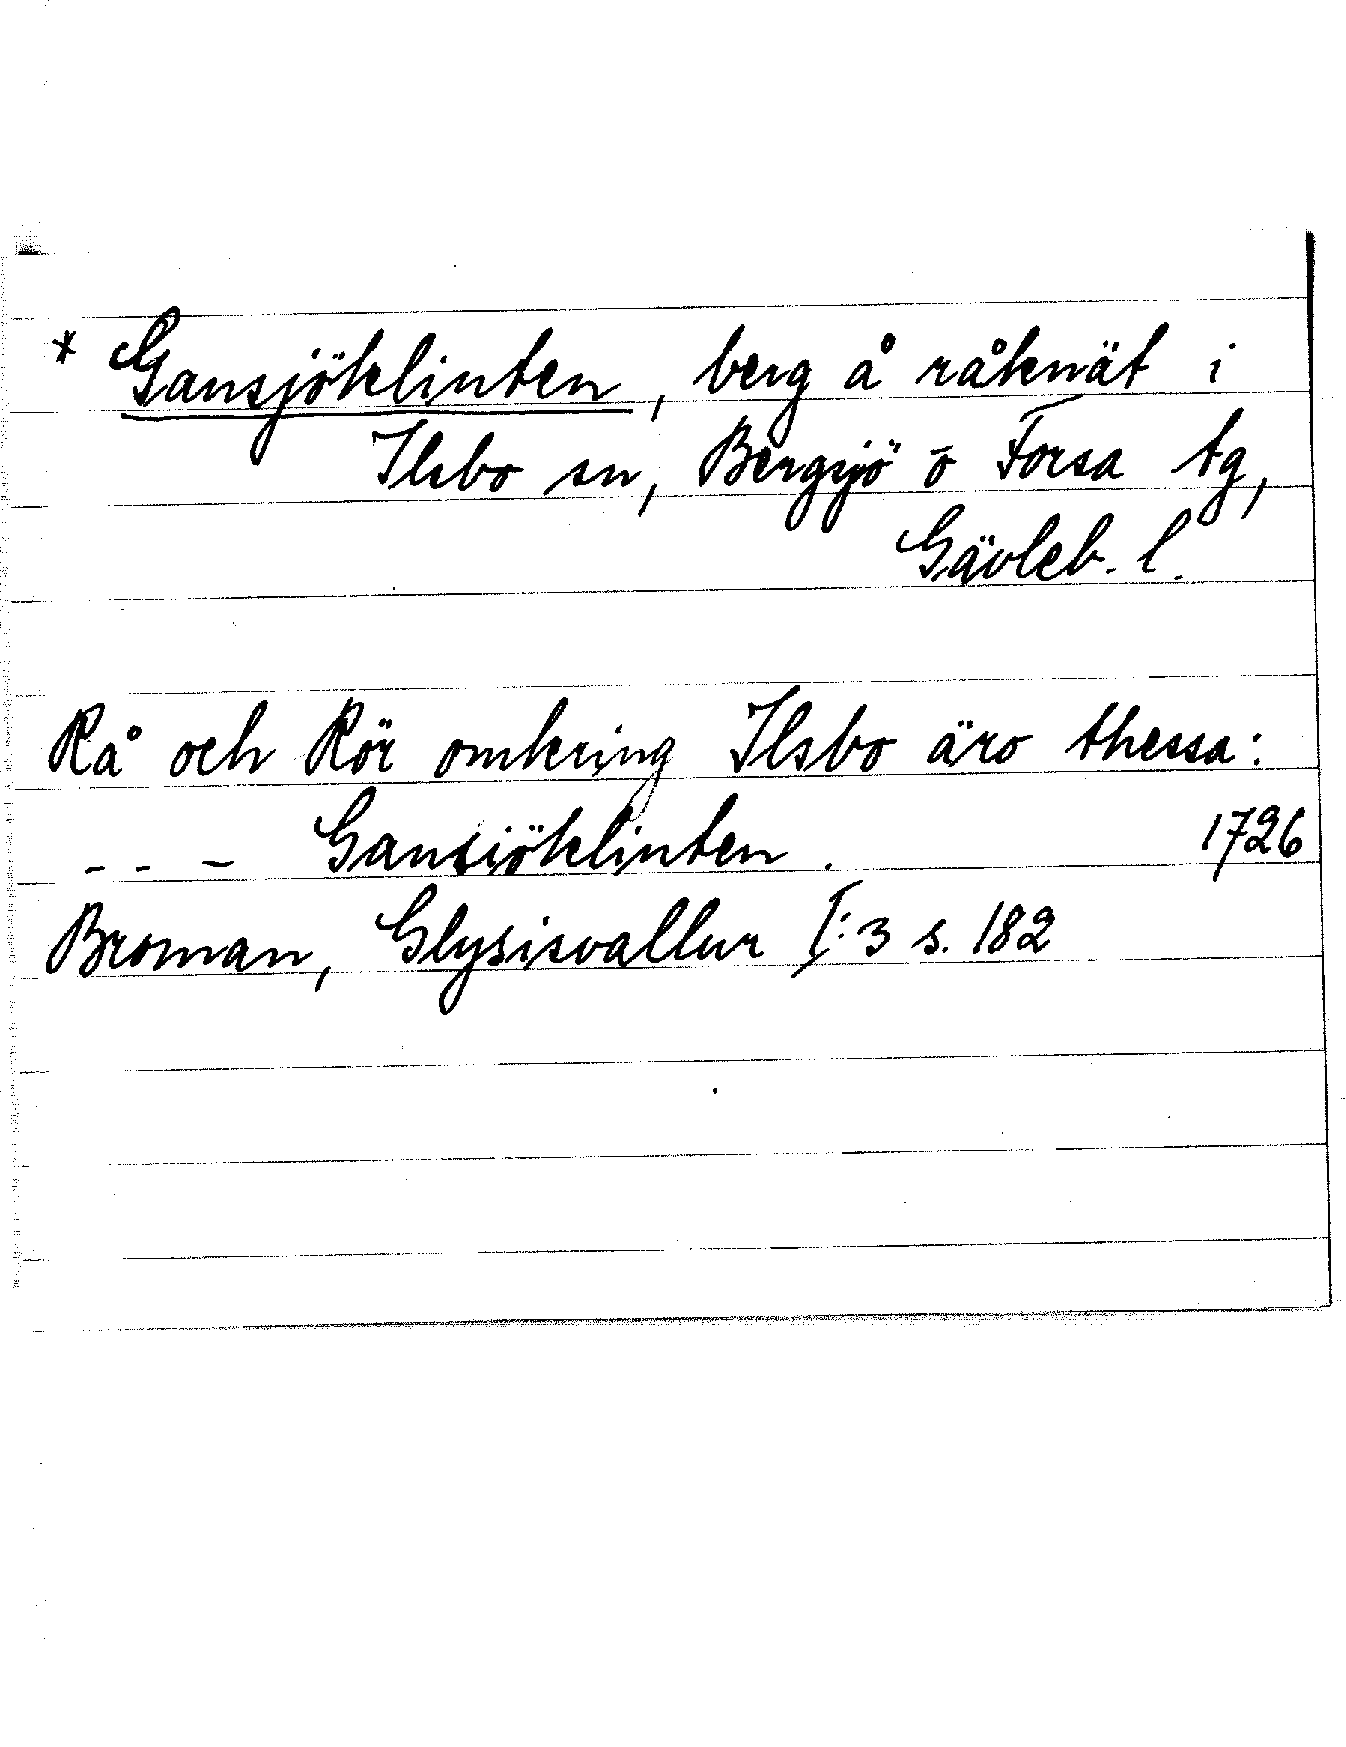 * Gansjöklinten, berg å råknät i
Ilsbo sn, Bergsjö o Forsa tg,
Gävleb. l.
Rå och Rör omkring Ilsbo äro thessa:
- - - Gansiöklinten. 1726
Broman, Glysisvallur I:3 s. 182